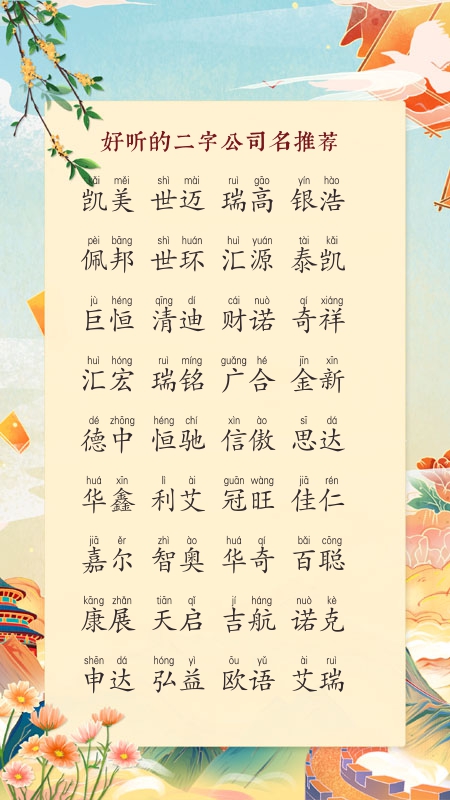 好听的二字公司名推荐
kǎi měi shì mài ruì gāo yín hào
凯美 世迈 瑞高 银浩
pèi bāng shì huán huì yuán tài kǎi
佩邦 世环 汇源 泰凯
jù héng qīng dí cái nuò qí xiáng
巨恒 清迪 财诺 奇祥
huì hóng ruì míng guǎng hé jīn xīn
汇宏 瑞铭 广合 金新
dé zhōng héng chí xìn ào sī dá
德中 恒驰 信傲 思达
huá xīn lì ài guān wàng jiā rén
华鑫 利艾 冠旺 佳仁
jiā ěr zhì ào huá qí bǎi cōng
嘉尔 智奥 华奇 百聪
kāng zhǎn tiān qǐ jí háng nuò kè
康展 天启 吉航 诺克
shēn dá hóng yì ōu yǔ ài ruì
申达 弘益 欧语 艾瑞